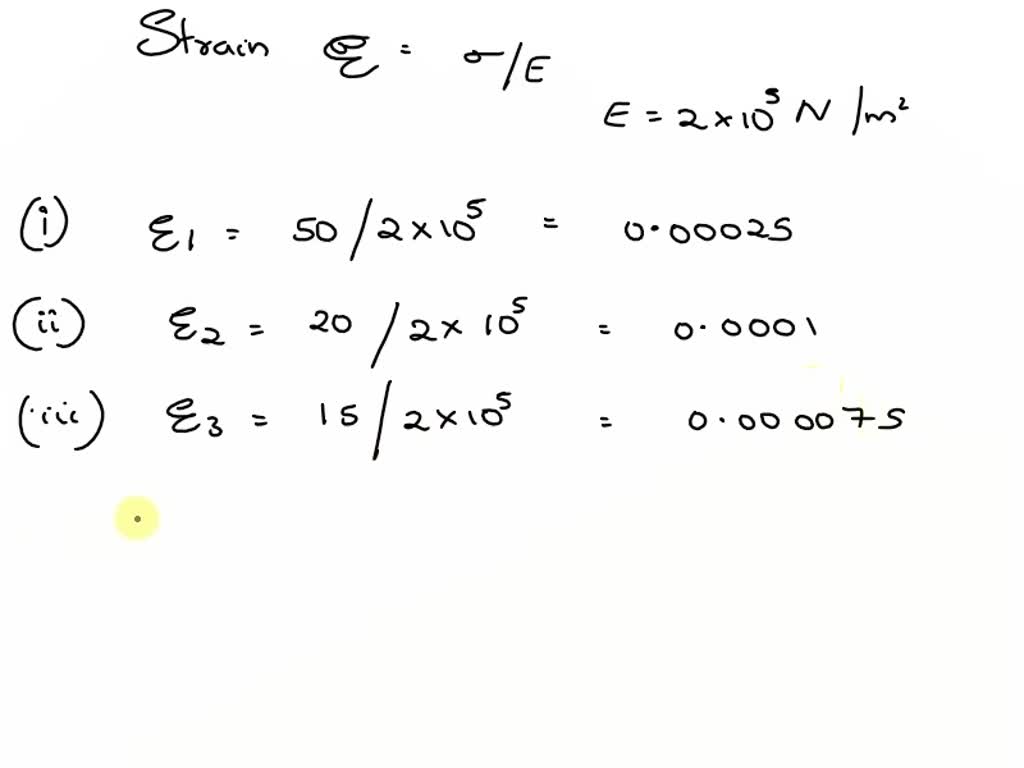 Strain ε = σ/E
E = 2 × 10⁵ N/m²
(i) ε1 = 50 / 2 × 10⁵ = 0.00025
(ii) ε2 = 20 / 2 × 10⁵ = 0.0001
(iii) ε3 = 15 / 2 × 10⁵ = 0.000075